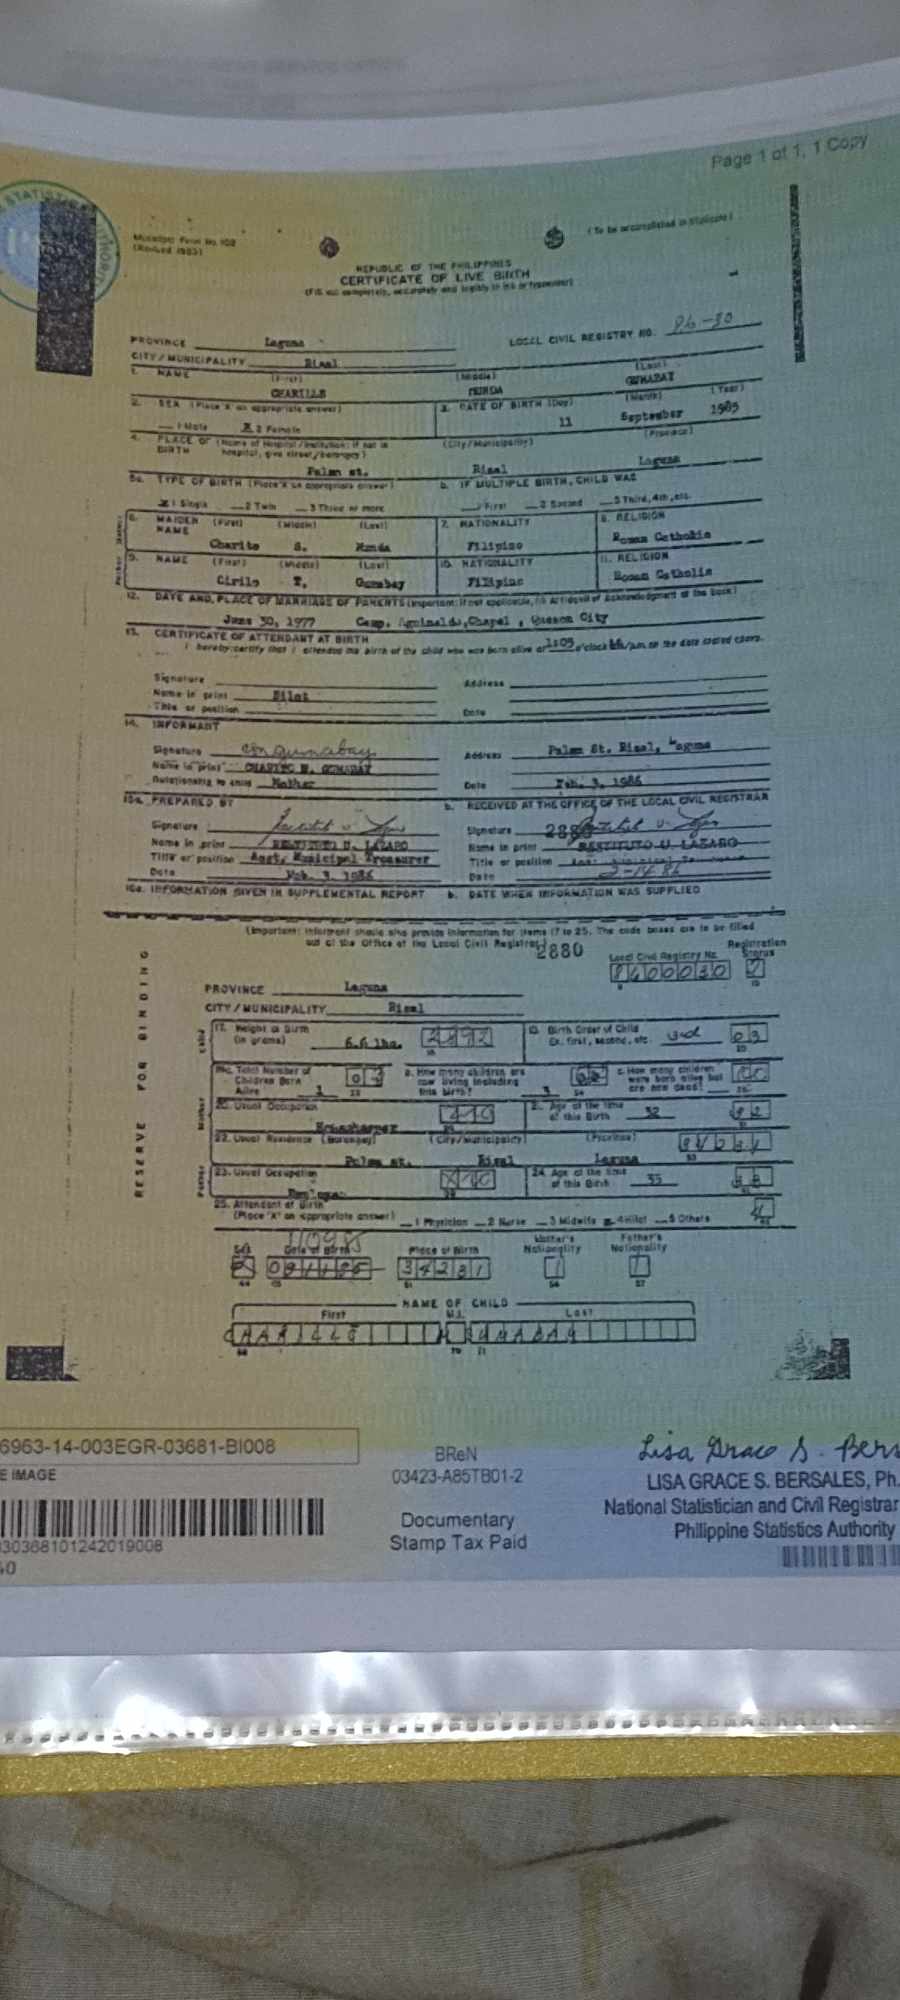 Page 1 of 1, 1 Copy
Municipal Form No. 102
(Revised 1983)
(To be accomplished in
REPUBLIC OF THE PHILIPPINES
CERTIFICATE OF LIVE BIRTH
(Fill out completely, accurately and legibly in ink or typewriter)
PROVINCE Laguna LOCAL CIVIL REGISTRY NO. 86-30
CITY/MUNICIPALITY Rizal
1. NAME (First) (Middle) (Last)
CHARILLE MUNDA GUMABAY
2. SEX (Place X on appropriate answer) 3. DATE OF BIRTH (Day) (Month) (Year)
1 Male X 2 Female 11 September 1985
4. PLACE OF BIRTH (Name of Hospital/Institution; if not in hospital, give street/barangay) (City/Municipality) (Province)
Palma st. Rizal Laguna
5a. TYPE OF BIRTH (Place X on appropriate answer) b. IF MULTIPLE BIRTH, CHILD WAS
X 1 Single 2 Twin 3 Three or more First 2 Second 3 Third, 4th, etc.
6. MAIDEN NAME (First) (Middle) (Last) 7. NATIONALITY 8. RELIGION
Charito S. Munda Filipino Roman Catholic
9. NAME (First) (Middle) (Last) 10. NATIONALITY 11. RELIGION
Cirilo T. Gumabay Filipino Roman Catholic
12. DATE AND PLACE OF MARRIAGE OF PARENTS (Important: If not applicable, fill Affidavit of Acknowledgment at the Back)
June 30, 1977 Camp. Aguinaldo, Chapel, Quezon City
13. CERTIFICATE OF ATTENDANT AT BIRTH
I hereby certify that I attended the birth of the child who was born alive at 1:05 o'clock on the date stated above.
Signature Address
Name in print Hilot
Title or position Date
14. INFORMANT
Signature Address Palma St. Rizal, Laguna
Name in print CHARITO M. GUMABAY
Relationship to child Mother Date Feb. 3, 1986
15a. PREPARED BY b. RECEIVED AT THE OFFICE OF THE LOCAL CIVIL REGISTRAR
Signature Signature 2880
Name in print RESTITUTO U. LAZARO Name in print RESTITUTO U. LAZARO
Title or position Asst. Municipal Treasurer Title or position
Date Feb. 3, 1986 Date 2-14-86
16a. INFORMATION GIVEN IN SUPPLEMENTAL REPORT b. DATE WHEN INFORMATION WAS SUPPLIED
(Important: Informant should also provide information for items 17 to 25. The code boxes are to be filled
out at the Office of the Local Civil Registrar)
2880
Local Civil Registry No. Registration Status
8600030
PROVINCE Laguna
CITY/MUNICIPALITY Rizal
RESERVE FOR BINDING
17. Weight at Birth (in grams) 6.6 lbs. 2992 18. Birth Order of Child Ex. first, second, etc. 3rd 03
19a. Total Number of Children Born Alive 3 03 b. How many children are now living including this birth? 3 c. How many children were born alive but are now dead?
20. Usual Occupation Housekeeper 21. Age at the time of this Birth 32
22. Usual Residence (Barangay) (City/Municipality) (Province)
Palma st. Rizal Laguna
23. Usual Occupation 24. Age at the time of this Birth 35
25. Attendant of Birth
(Place 'X' on appropriate answer) 1 Physician 2 Nurse 3 Midwife 4 Hilot 5 Others
Sex Date of Birth Place of Birth Mother's Nationality Father's Nationality
091185 34231 1 1
NAME OF CHILD
First M.I. Last
CHARILLE M GUMABAY
6963-14-003EGR-03681-BI008
E IMAGE
BReN
03423-A85TB01-2
Documentary
Stamp Tax Paid
Lisa Grace S. Bers
LISA GRACE S. BERSALES, Ph.
National Statistician and Civil Registrar
Philippine Statistics Authority
030368101242019008